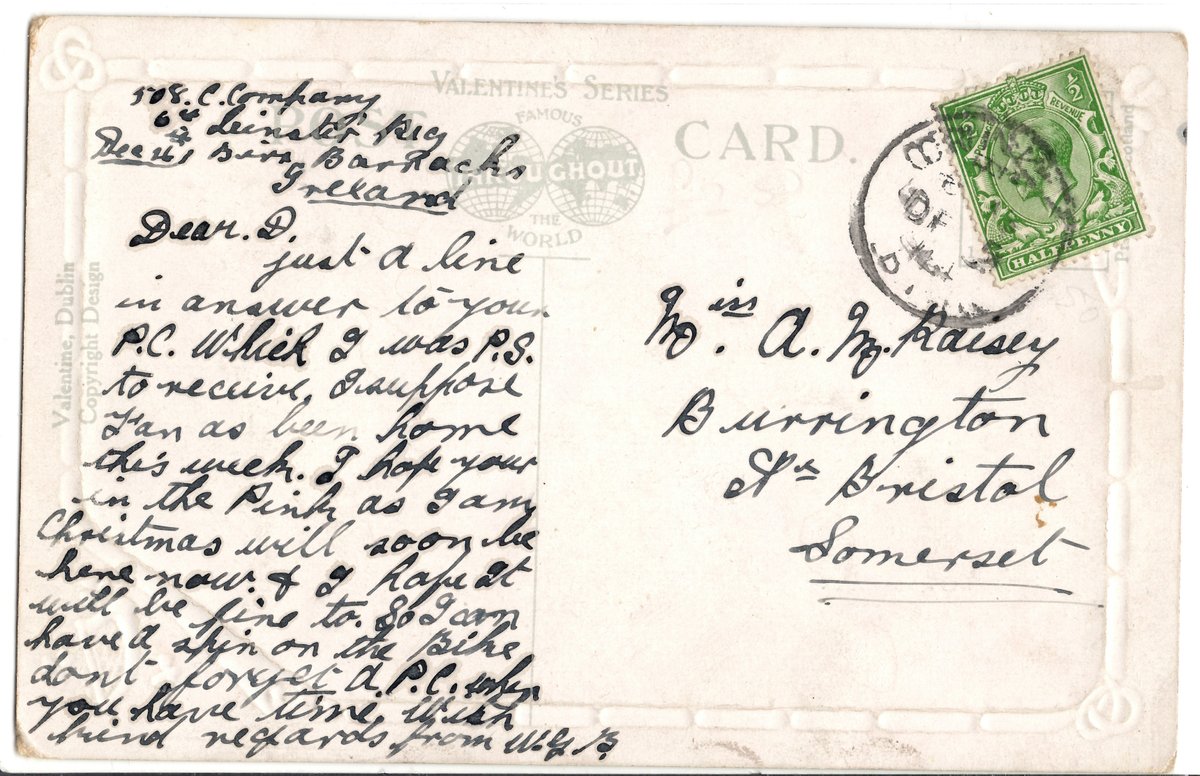 VALENTINE'S SERIES
FAMOUS
THROUGHOUT
THE
WORLD
POST CARD.
Valentine, Dublin
Copyright Design
508. C. Company
6th Leinster Reg
Birr Barracks
Ireland
Dear. D.
just a line
in answer to your
P.C. Which I was P.S.
to receive, I suppose
Fan as been home
this week. I hope your
in the Pink as I am
Christmas will soon be
here now. & I hope It
will be fine to. So I can
have a spin on the Bike
dont forget a P.C. when
you have time, With
kind regards from W.G.B.
Miss. A. M. Kaisey
Burrington
Nr Bristol
Somerset
1/2 1/2
REVENUE
HALFPENNY